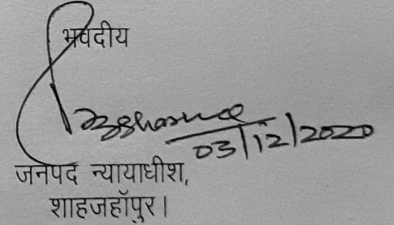 भवदीय
03/12/2020
जनपद न्यायाधीश,
शाहजहॉपुर।